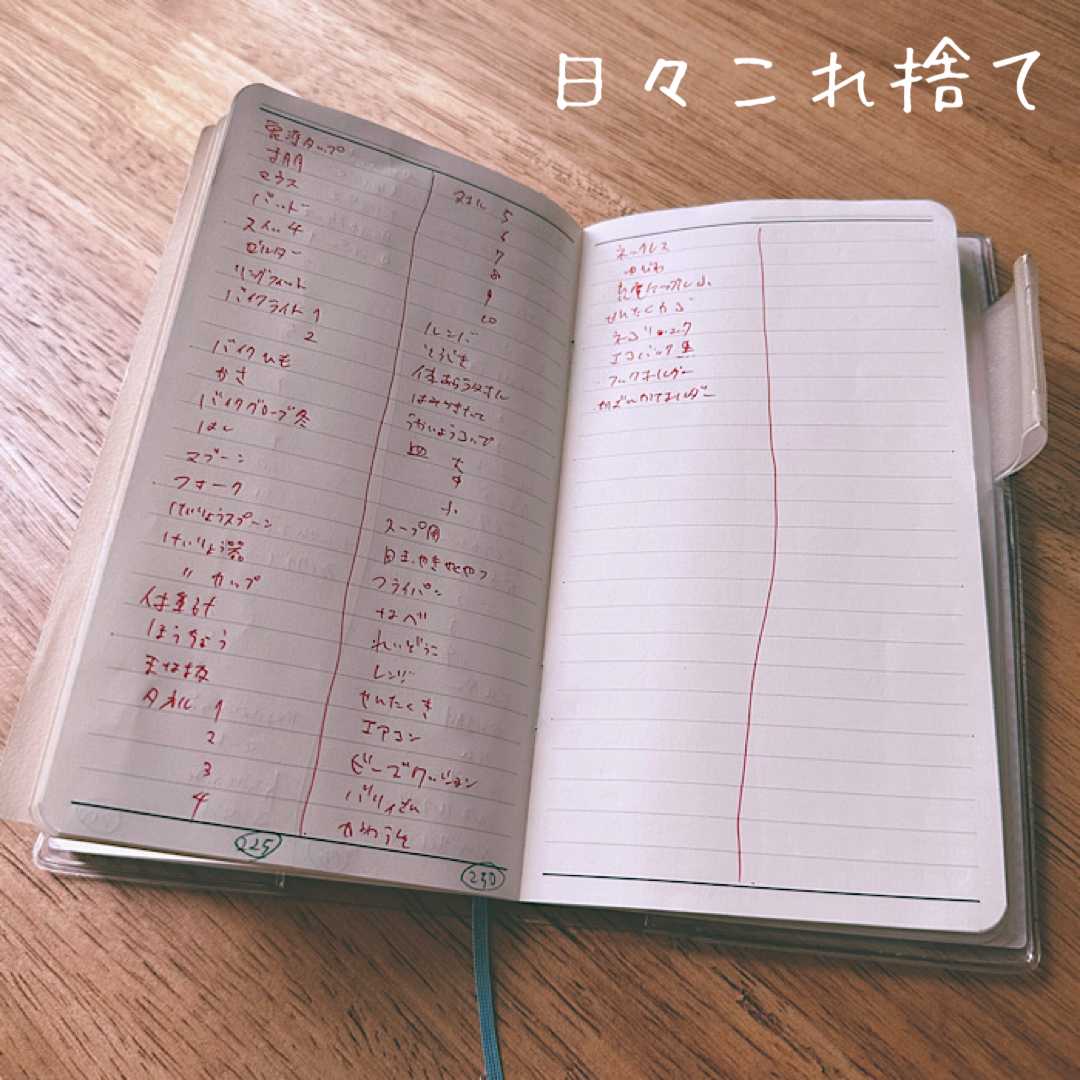 日々これ捨て
電源タップ
マウス
バット
スイッチ
ホルダー
リングフィット
バイクライト 1
2
バイクひも
かさ
バイクグローブ冬
はし
スプーン
フォーク
けいりょうスプーン
けいりょう器
〃 カップ
体重計
ほうちょう
まな板
タオル 1
2
3
4
225
タオル 5
6
7
8
9
10
体あらうタオル
はみがきたて
うがいようコップ
皿 大
中
小
スープ用
目玉やきやくやつ
フライパン
なべ
れいぞうこ
レンジ
せんたくき
エアコン
ビーズクッション
かわうそ
230
ネックレス
ゆびわ
せんたくかご
エコバック 黒
フックホルダー
かばんかけホルダー